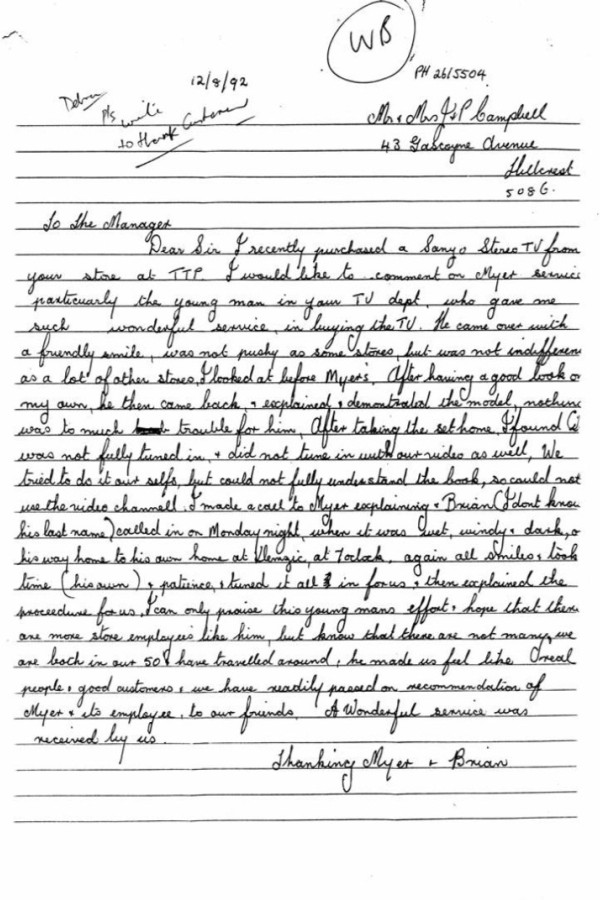 WB
PH 2615504
12/8/92
Debra
P/s write
to thank Customer
Mr & Mrs J & P Campbell
43 Gascoyne Avenue
Hillcrest
5086.
To The Manager
Dear Sir I recently purchased a Sanyo Stereo TV from
your store at TTP. I would like to comment on Myer service
particuarly the young man in your TV dept, who gave me
such wonderful service, in buying the TV. He came over with
a friendly smile, was not pushy as some stores, but was not indifferen
as a lot of other stores, I looked at before Myer's, After having a good look o
my own, he then came back & explained & demontrated the model, nothin
was to much trouble for him, After taking the set home, I found (it
was not fully tuned in, & did not tune in with our video as well, We
tried to do it our selfs, but could not fully understand the book, so could not
use the video channell. I made a call to Myer explaining & Brian (I dont know
his last name) called in on Monday night, when it was wet, windy & dark, o
his way home to his own home at Glenzic, at 7 oclock, again all smiles & took
time (his own) & patience, & tuned it all in for us, & then explained the
proceedure for us, I can only praise this young mans effort, & hope that there
are more store employee's like him, but know that there are not many, we
are both in our 50's & have travelled around, he made us feel like real
people, & good customers, & we have readily passed on recommendation of
Myer & it's employee, to our friends. A Wonderful service was
received by us.
Thanking Myer & Brian